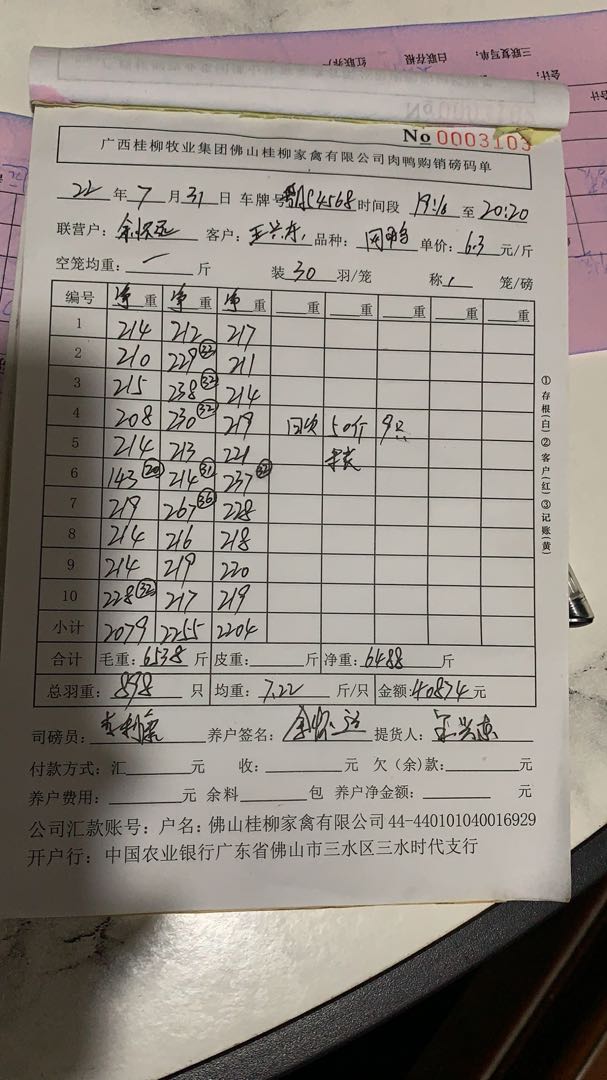 三联复写单：
白联存根
红联养户
会计：
No 0003103
广西桂柳牧业集团佛山桂柳家禽有限公司肉鸭购销磅码单
22 年 7 月 31 日 车牌号 4568 时间段 19:16 至 20:20
联营户： 客户：王兴 品种： 单价：6.3 元/斤
空笼均重：一 斤 装 30 羽/笼 称 1 笼/磅
编号 净重 净重 净重 重 重 重 重
1 214 212 217
2 210 229 32 211
3 215 238 32 214
4 208 230 32 219 回收 50斤 9只
5 214 213 221
6 143 20 214 31 237
7 219 267 36 228
8 214 216 218
9 214 219 220
10 228 32 217 219
小计 2079 2255 2204
合计 毛重：6538 斤 皮重： 斤 净重：6488 斤
总羽重：898 只 均重：7.22 斤/只 金额：40874 元
司磅员： 养户签名： 提货人：王兴
付款方式：汇 元 收： 元 欠（余）款： 元
养户费用： 元 余料 包 养户净金额： 元
公司汇款账号：户名：佛山桂柳家禽有限公司44-440101040016929
开户行：中国农业银行广东省佛山市三水区三水时代支行
①存根(白)②客户(红)③记账(黄)